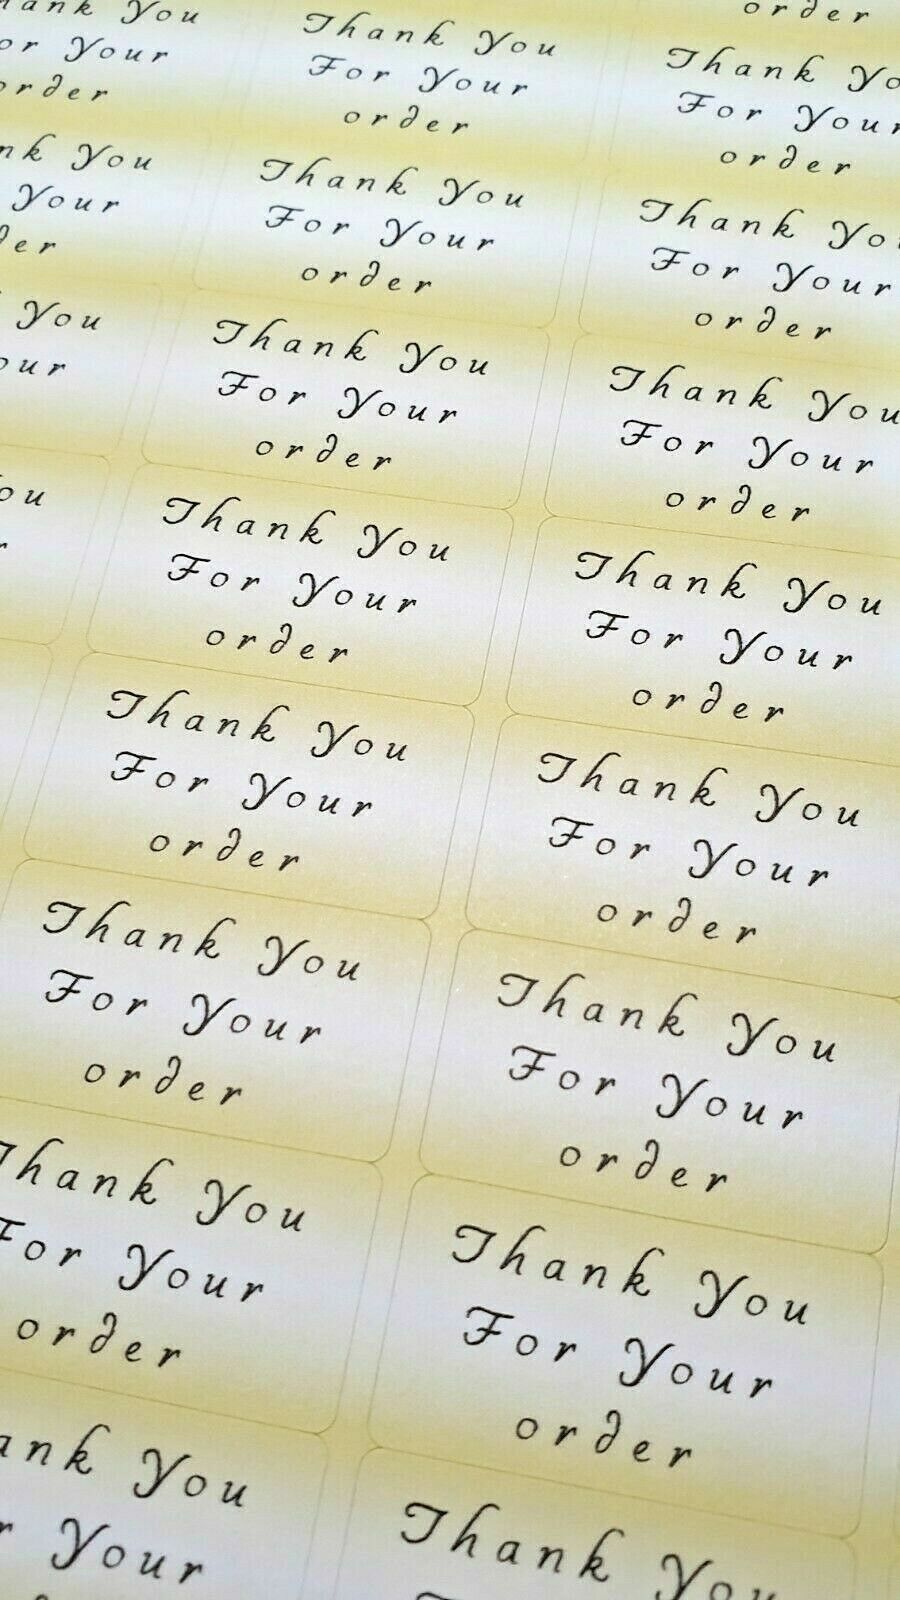 You
Your
order
You
Your
You
Thank You
For Your
order
Thank You
For Your
order
Thank You
For Your
order
Thank You
For Your
order
Thank You
For Your
order
Thank You
For Your
order
Thank You
For Your
order
You
Your
order
Thank Yo
For Your
order
Thank You
For Your
order
Thank You
For Your
order
Thank You
For Your
order
Thank You
For Your
order
Thank You
For Your
order
Thank You
For Your
order
Thank You